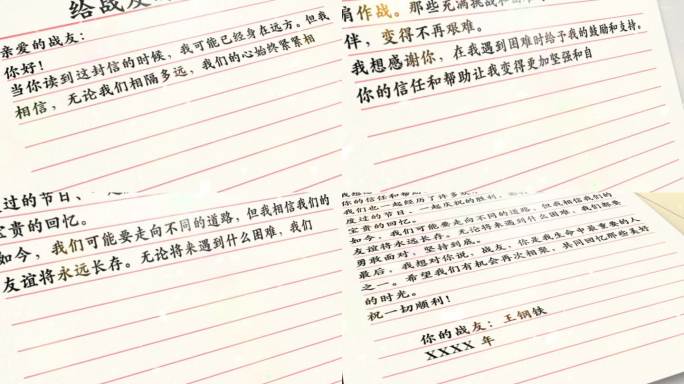 给战友
亲爱的战友：
你好！
当你读到这封信的时候，我可能已经身在远方。但我
相信，无论我们相隔多远，我们的心始终紧紧相
肩作战。那些充满挑战和
伴，变得不再艰难。
我想感谢你，在我遇到困难时给予我的鼓励和支持。
你的信任和帮助让我变得更加坚强和自
度过的节日、
宝贵的回忆。
如今，我们可能要走向不同的道路，但我相信我们的
友谊将永远长存。无论将来遇到什么困难，我们
你的信任和帮助
我们也一起经历了许多
度过的节日、一起庆祝的胜利，
宝贵的回忆。
如今，我们可能要走向不同的道路，但我相信我们的
友谊将永远长存。无论将来遇到什么困难，我们都要
勇敢面对，坚持到底。
最后，我想对你说，战友，你是我生命中最重要的人
之一。希望我们有机会再次相聚，共同回忆那些美好
的时光。
祝一切顺利！
你的战友：王钢铁
XXXX 年